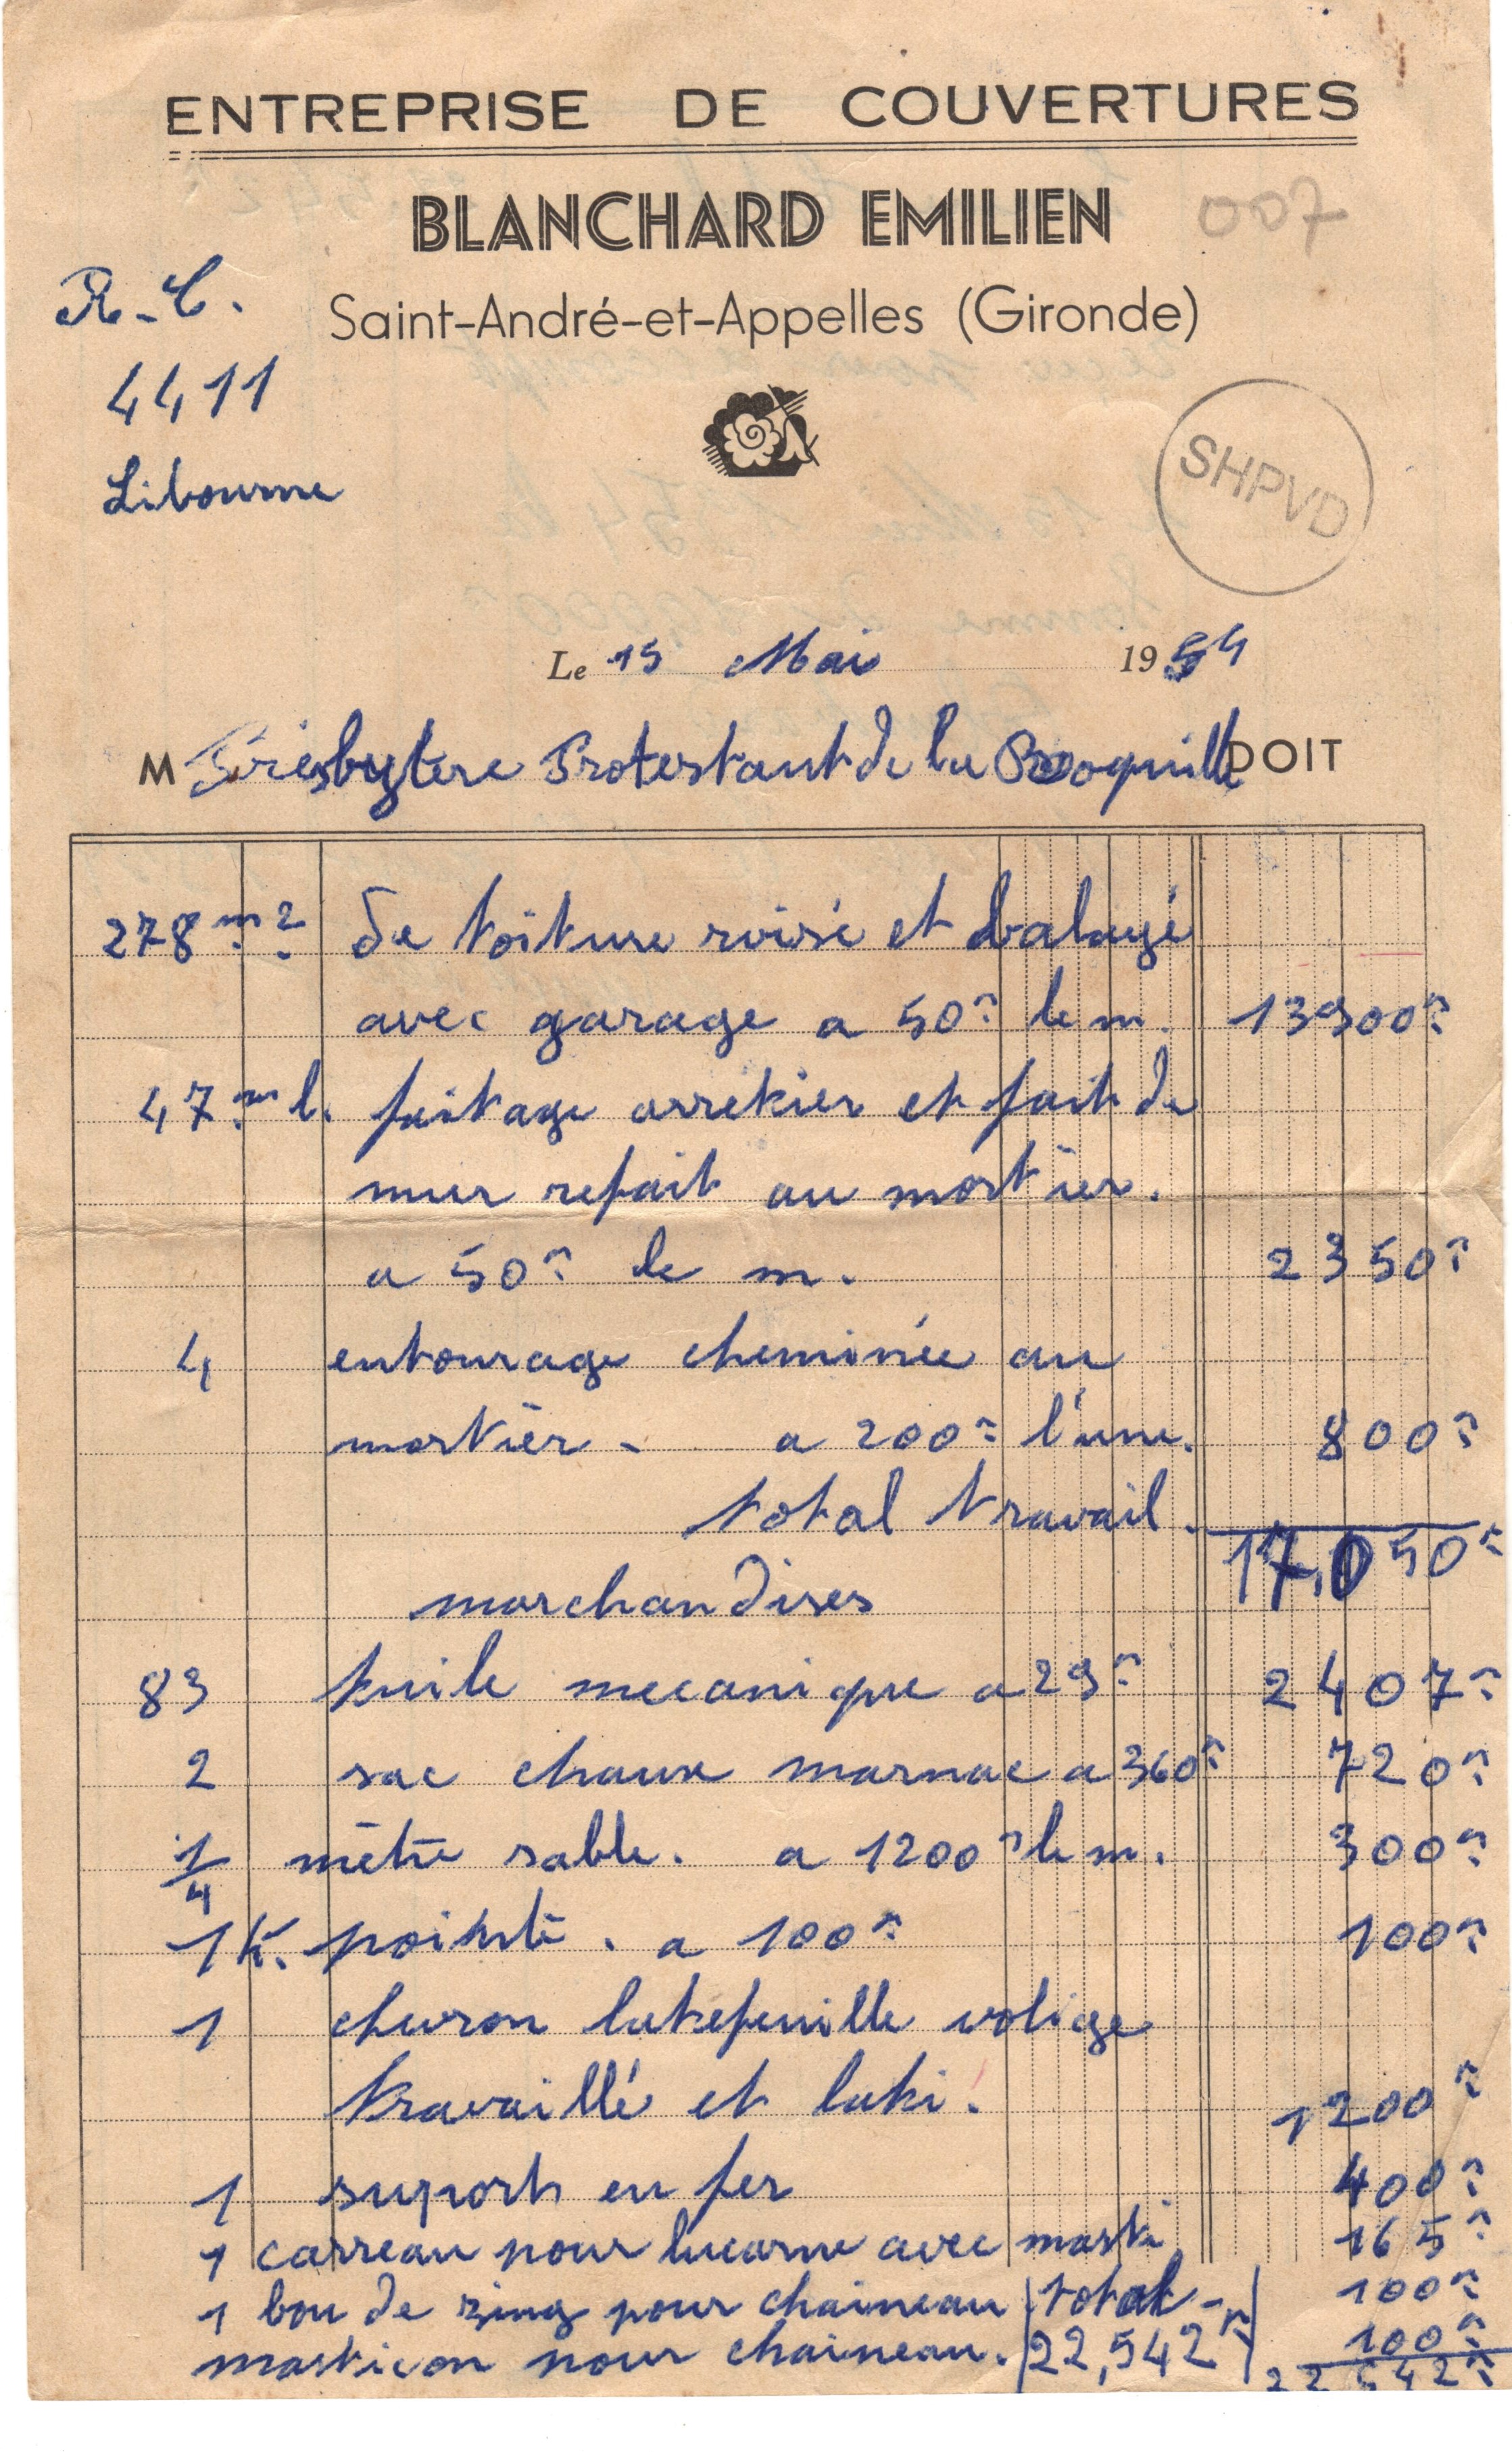 ENTREPRISE DE COUVERTURES
BLANCHARD EMILIEN
007
R.C.
Saint-André-et-Appelles (Gironde)
4411
Libourne
SHPVD
Le 15 Mai 1954
M Presbytere Protestant de la Roquille DOIT
278 m2 de toiture roisé et balayé
avec garage a 50 le m. 13900
47 m l. faitage arretier et fait de
mur refait au mortier.
a 50 le m. 2350
4 entourage cheminée au
mortier - a 200 l'une. 800
total travail. 17.050
marchandises
83 tuile mecanique a 29 2407
2 sac chaux marnac a 360 720
1/4 mètre sable. a 1200 le m. 300
1 K. pointe. a 100 100
1 chevron volige
travaillé et 1200
1 suport en fer 400
1 carreau pour lucarne avec masti 165
1 bou de zing pour chaineau total - 100
masticon pour chaineau. 22,542 100
22542